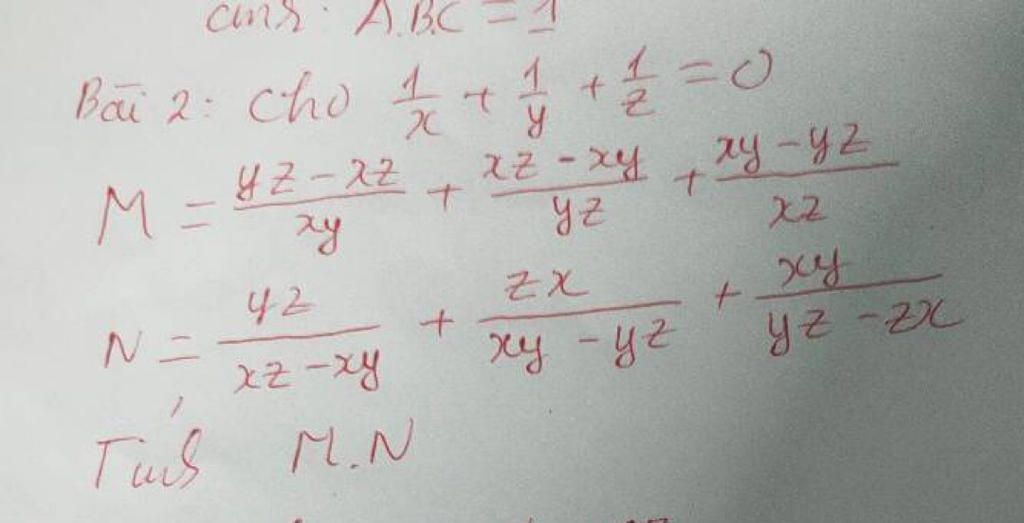 cmr: A.B.C = 1
Bài 2: Cho 1/x + 1/y + 1/z = 0
M = (yz - xz)/(xy) + (xz - xy)/(yz) + (xy - yz)/(xz)
N = (yz)/(xz - xy) + (zx)/(xy - yz) + (xy)/(yz - zx)
Tính M.N